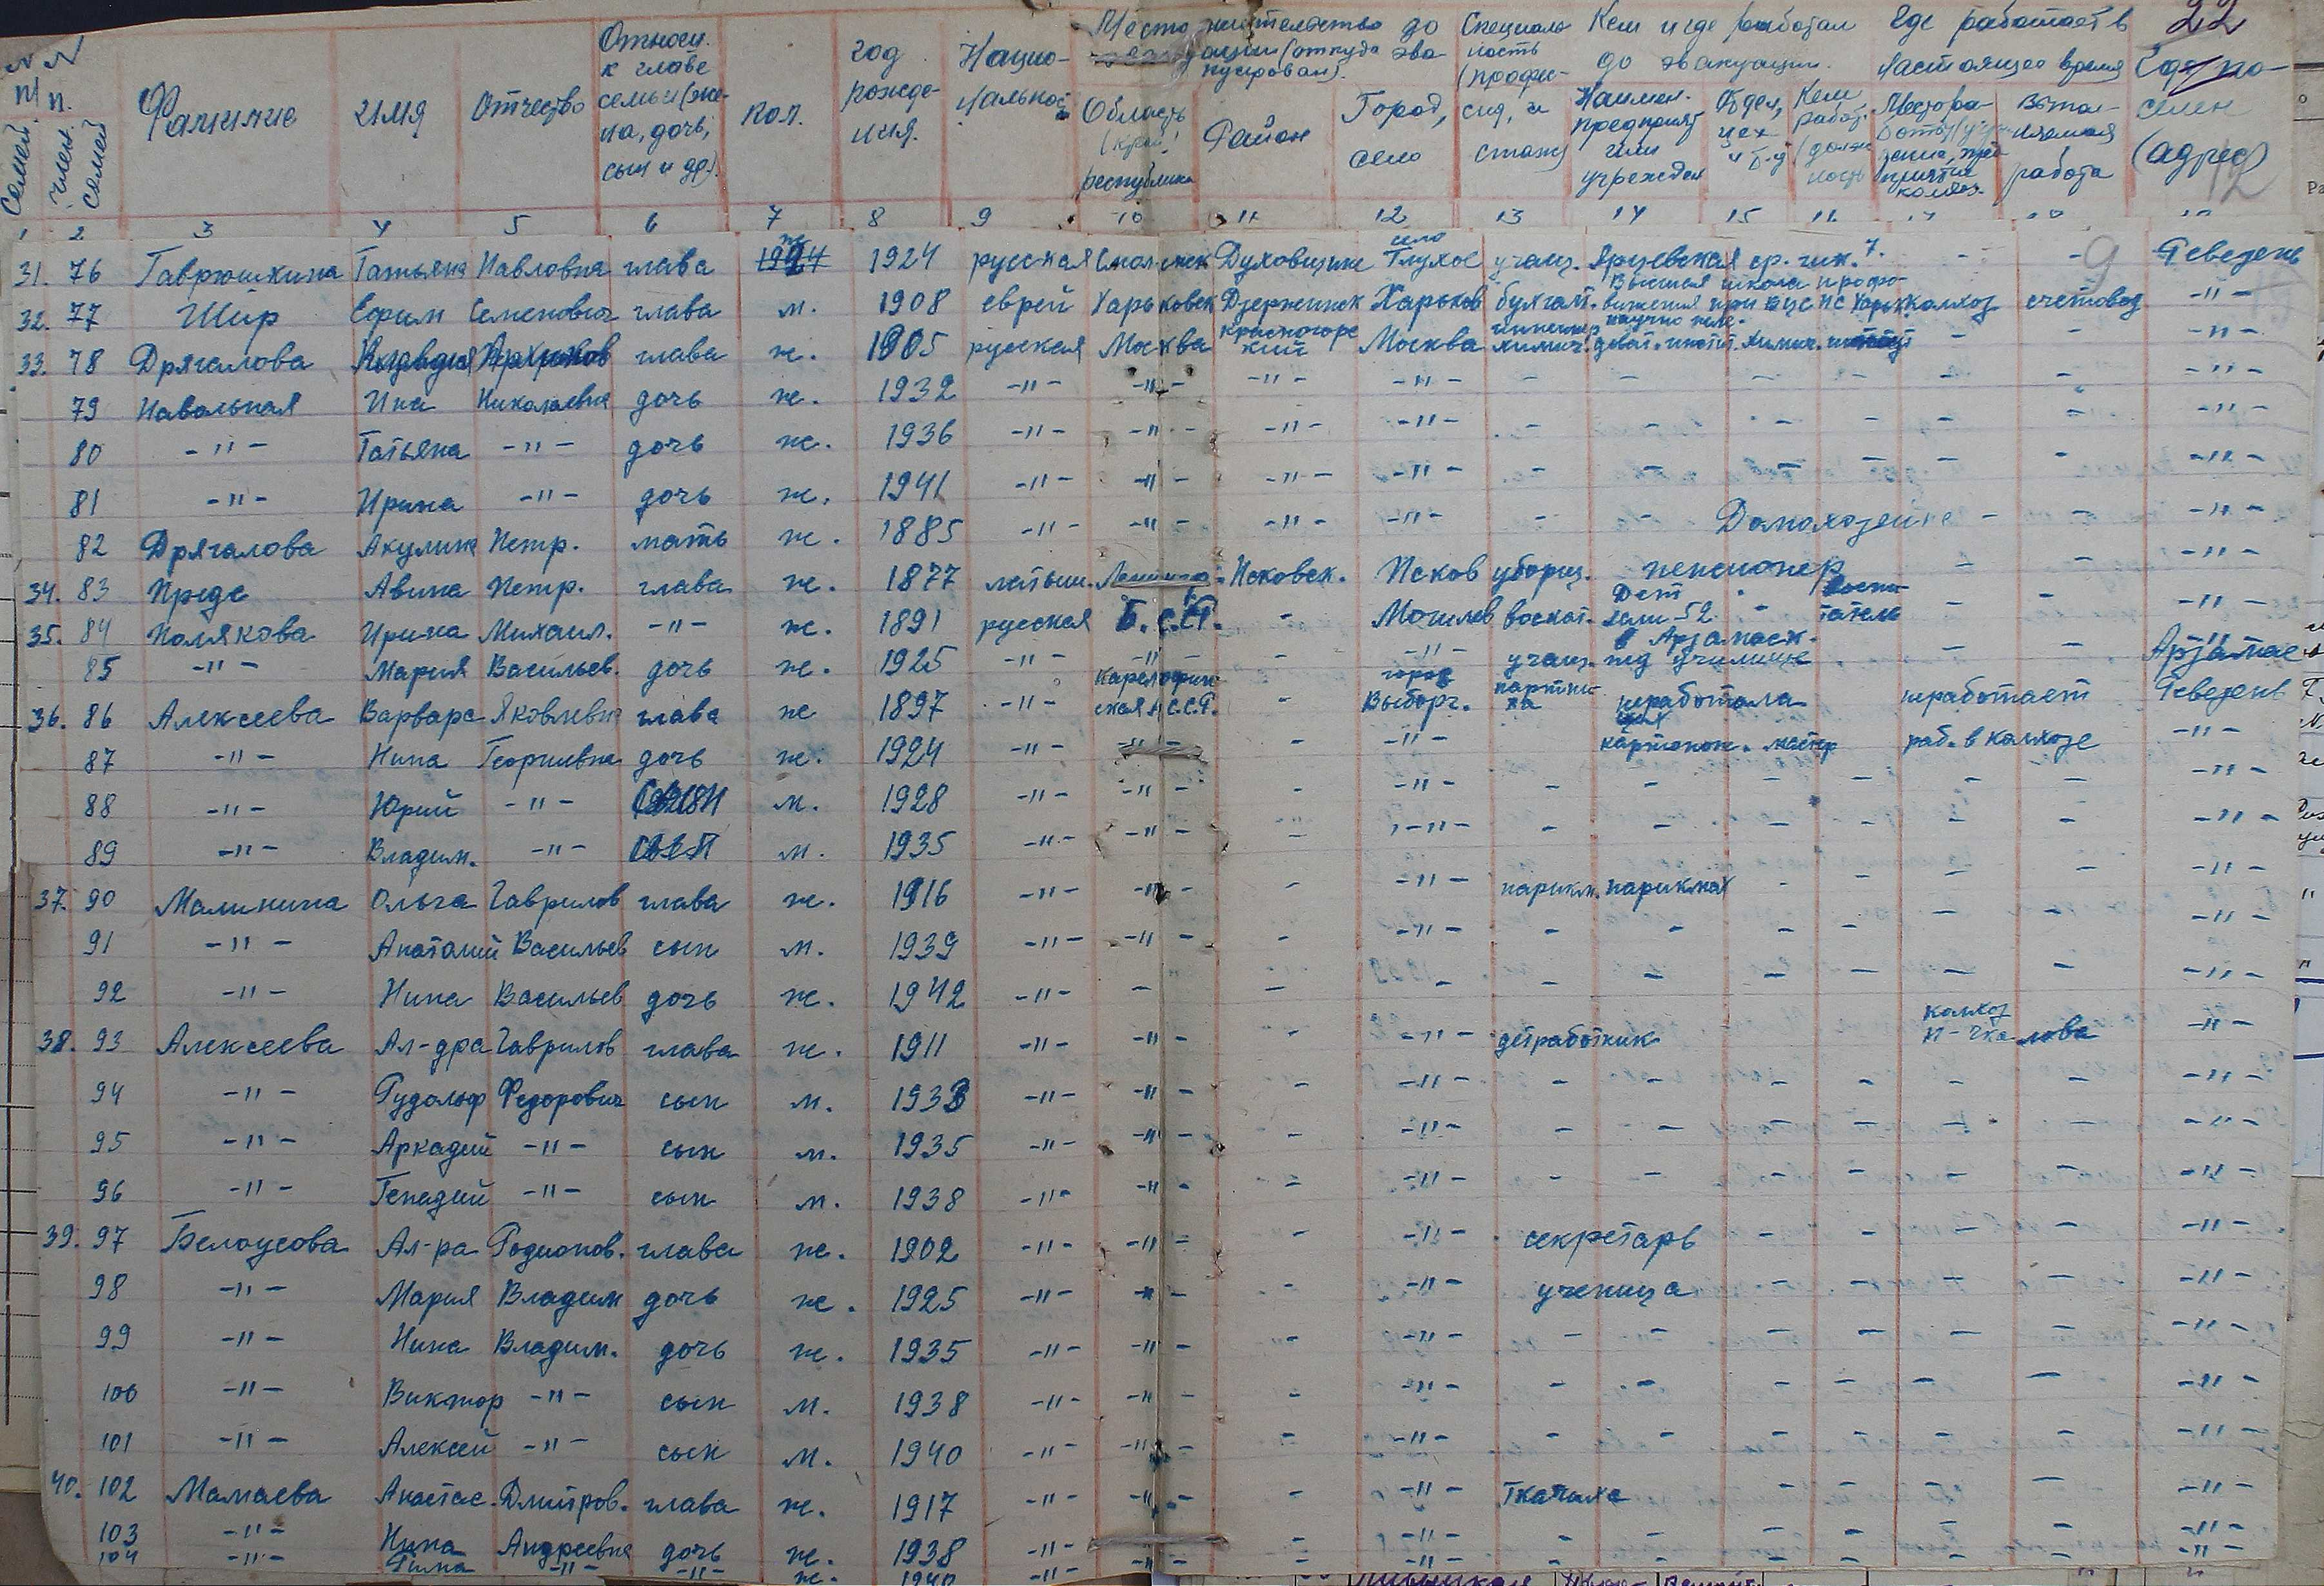 22
№ п/п. семей
№ п. член. семей
Фамилие
Имя
Отчество
Относи. к главе семьи (же- на, дочь, сын и др).
Пол.
год рожде- ния.
Нацио- нальнос
Место жительство до (откуда эва- куирован).
Область (край) республика
Район
Город, село
Специаль ность (профес- сия, и стаж)
Кем и где работал до эвакуации.
Наимен. предприят или учрежден
Отдел, цех и т.д
Кем работ. (долж ность
Где работает в настоящее время
выпол- няемая работа
Где по- селен (адрес)
12
1 2 3 4 5 6 7 8 9 10 11 12 13 14 15 16
31. 76 Гаврюшкина Татьяна Павловна глава ж 1924 1924 русская Смоленск Духовщинс село Глухое учащ. ср. шк. 7. - - 9 Реведень
32. 77 Шир Ефим Семенович глава м. 1908 еврей Харьковск Дзержинск Харьков бухгалт. Высшая школа профд- вижения при ВЦСПС Харьк колхоз счетовод -"-
33. 78 Дрягалова глава ж. 1905 русская Москва Красногорс кий Москва инженер химич. научно иссле- доват. инстит. химич. - - -"-
79 Навольная Ина Николаевна дочь ж. 1932 -"- -"- -"- -"- - - - - - - -"-
80 -"- Татьяна -"- дочь ж. 1936 -"- -"- -"- -"- - - - - - - -"-
81 -"- Ирина -"- дочь ж. 1941 -"- -"- -"- -"- - - - - - - -"-
82 Дрягалова Акулина Петр. мать ж. 1885 -"- -"- -"- -"- - - Домохозейне - - -"-
34. 83 Преде Авина Петр. глава ж. 1877 латыш. Ленингр. Псковск. Псков уборщ. пенсионер - - -"-
35. 84 Полякова Ирина Михаил. -"- ж. 1891 русская Б.С.С.Р. - Могилев воспит. Дет ясли-52. " воспи татель - - -"-
85 -"- Мария Васильев. дочь ж. 1925 -"- -"- - -"- учащ. в Арзамаск. пед училище - - Арзамас
36. 86 Алексеева Варвара Яковлевна глава ж 1897 -"- Карелофин ская С.С.Р. - город Выборг. портни ха неработала неработает Реведень
87 -"- Нина Георгиевна дочь ж. 1924 -"- -"- - -"- цех картонаж. мастер раб. в колхозе -"-
88 -"- Юрий -"- сын м. 1928 -"- -"- - -"- - - - - - - -"-
89 -"- Владим. -"- сын м. 1935 -"- -"- - -"- - - - - - - -"-
37. 90 Малинина Ольга Гаврилов глава ж. 1916 -"- -"- - -"- парикм. парикмах - - - - -"-
91 -"- Анатолий Васильев сын м. 1939 -"- -"- - -"- - - - - - - -"-
92 -"- Нина Васильев дочь ж. 1942 -"- - - - - - - - - - -"-
38. 93 Алексеева Ал-дра Гаврилов глава ж. 1911 -"- -"- - -"- детработник колхоз и-Чкалова -"-
94 -"- Рудольф Федорович сын м. 1933 -"- -"- - -"- - - - - - - -"-
95 -"- Аркадий -"- сын м. 1935 -"- -"- - -"- - - - - - - -"-
96 -"- Генадий -"- сын м. 1938 -"- -"- - -"- - - - - - - -"-
39. 97 Белоусова Ал-ра Родионов. глава ж. 1902 -"- -"- - -"- секретарь - - - - -"-
98 -"- Мария Владим дочь ж. 1925 -"- -"- - -"- ученица - - - - -"-
99 -"- Нина Владим. дочь ж. 1935 -"- -"- - -"- - - - - - - -"-
100 -"- Виктор -"- сын м. 1938 -"- -"- - -"- - - - - - - -"-
101 -"- Алексей -"- сын м. 1940 -"- -"- - -"- - - - - - - -"-
40. 102 Мамаева Анастас. Дмитров. глава ж. 1917 -"- -"- - -"- Ткачиха - - - - -"-
103 -"- Нина Андреевна дочь ж. 1938 -"- -"- - -"- - - - - - - -"-
104 -"- Римма -"- -"- ж. 1940 -"- -"- - -"- - - - - - - -"-